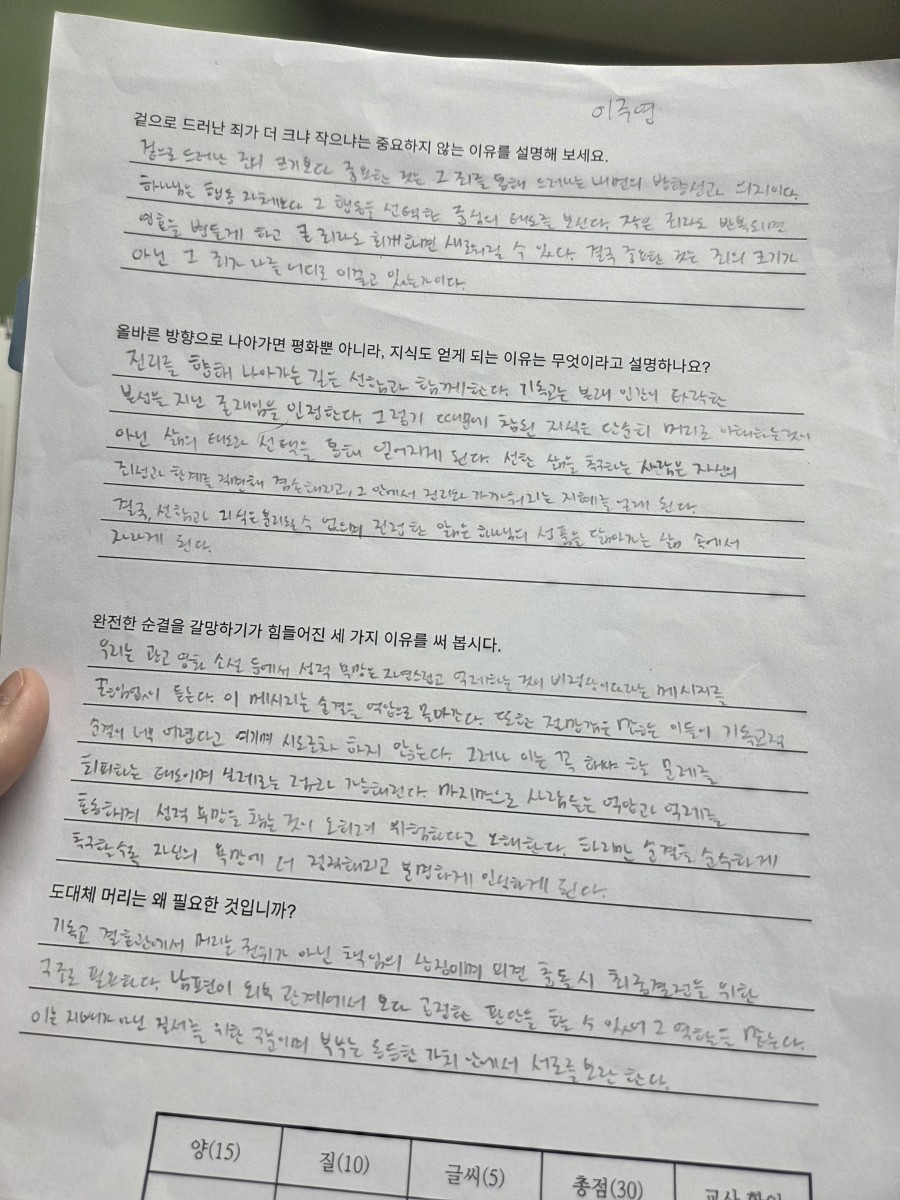 이주영
겉으로 드러난 죄가 더 크냐 작으냐는 중요하지 않는 이유를 설명해 보세요.
겉으로 드러난 죄의 크기보다 중요한 것은 그 죄를 통해 드러나는 내면의 방향성과 의지이다.
하나님은 행동 자체보다 그 행동을 선택한 중심의 태도를 보신다. 작은 죄라도 반복되면
영혼을 병들게 하고 큰 죄라도 회개하면 새로워질 수 있다. 결국 중요한 것은 죄의 크기가
아닌 그 죄가 나를 어디로 이끌고 있는가이다.
올바른 방향으로 나아가면 평화뿐 아니라, 지식도 얻게 되는 이유는 무엇이라고 설명하나요?
진리를 향해 나아가는 길은 선함과 함께한다. 기독교는 본래 인간이 타락한
본성을 지닌 존재임을 인정한다. 그렇기 때문에 참된 지식은 단순히 머리로 이해하는것이
아닌 삶의 태도와 선택을 통해 얻어지게 된다. 선한 삶을 추구하는 사람은 자신의
죄성과 한계를 직면해 겸손해지고, 그 안에서 진리와 가까워지는 지혜를 얻게 된다.
결국, 선함과 지식은 분리될 수 없으며 진정한 앎은 하나님의 성품을 닮아가는 삶 속에서
자라게 된다.
완전한 순결을 갈망하기가 힘들어진 세 가지 이유를 써 봅시다.
우리는 광고 영화 소설 등에서 성적 욕망은 자연스럽고 억제하는 것이 비정상이라는 메시지를
끊임없이 듣는다. 이 메시지는 순결을 억압으로 몰아간다. 또한 절망감은 많은 이들이 기독교적
순결이 너무 어렵다고 여기며 시도조차 하지 않는다. 그러나 이는 꼭 해야 할 문제를
회피하는 태도이며 실제로는 가능해진다. 마지막으로 사람들은 억압과 억제를
혼동해 성적 욕망을 참는 것이 오히려 위험하다고 오해한다. 하지만 순결을 순수하게
추구할수록 자신의 욕망에 더 정직해지고 분명하게 인식하게 된다.
도대체 머리는 왜 필요한 것입니까?
기독교 결혼관에서 머리는 권위가 아닌 책임의 상징이며 의견 충돌시 최종결정을 위한
구조로 필요하다. 남편이 외부 관계에서 보다 공정한 판단을 할 수 있어 그 역할을 맡는다.
이는 지배가 아닌 질서를 위한 구분이며 부부는 동등한 가치 안에서 서로를 보완 한다.
양(15) 질(10) 글씨(5) 총점(30)